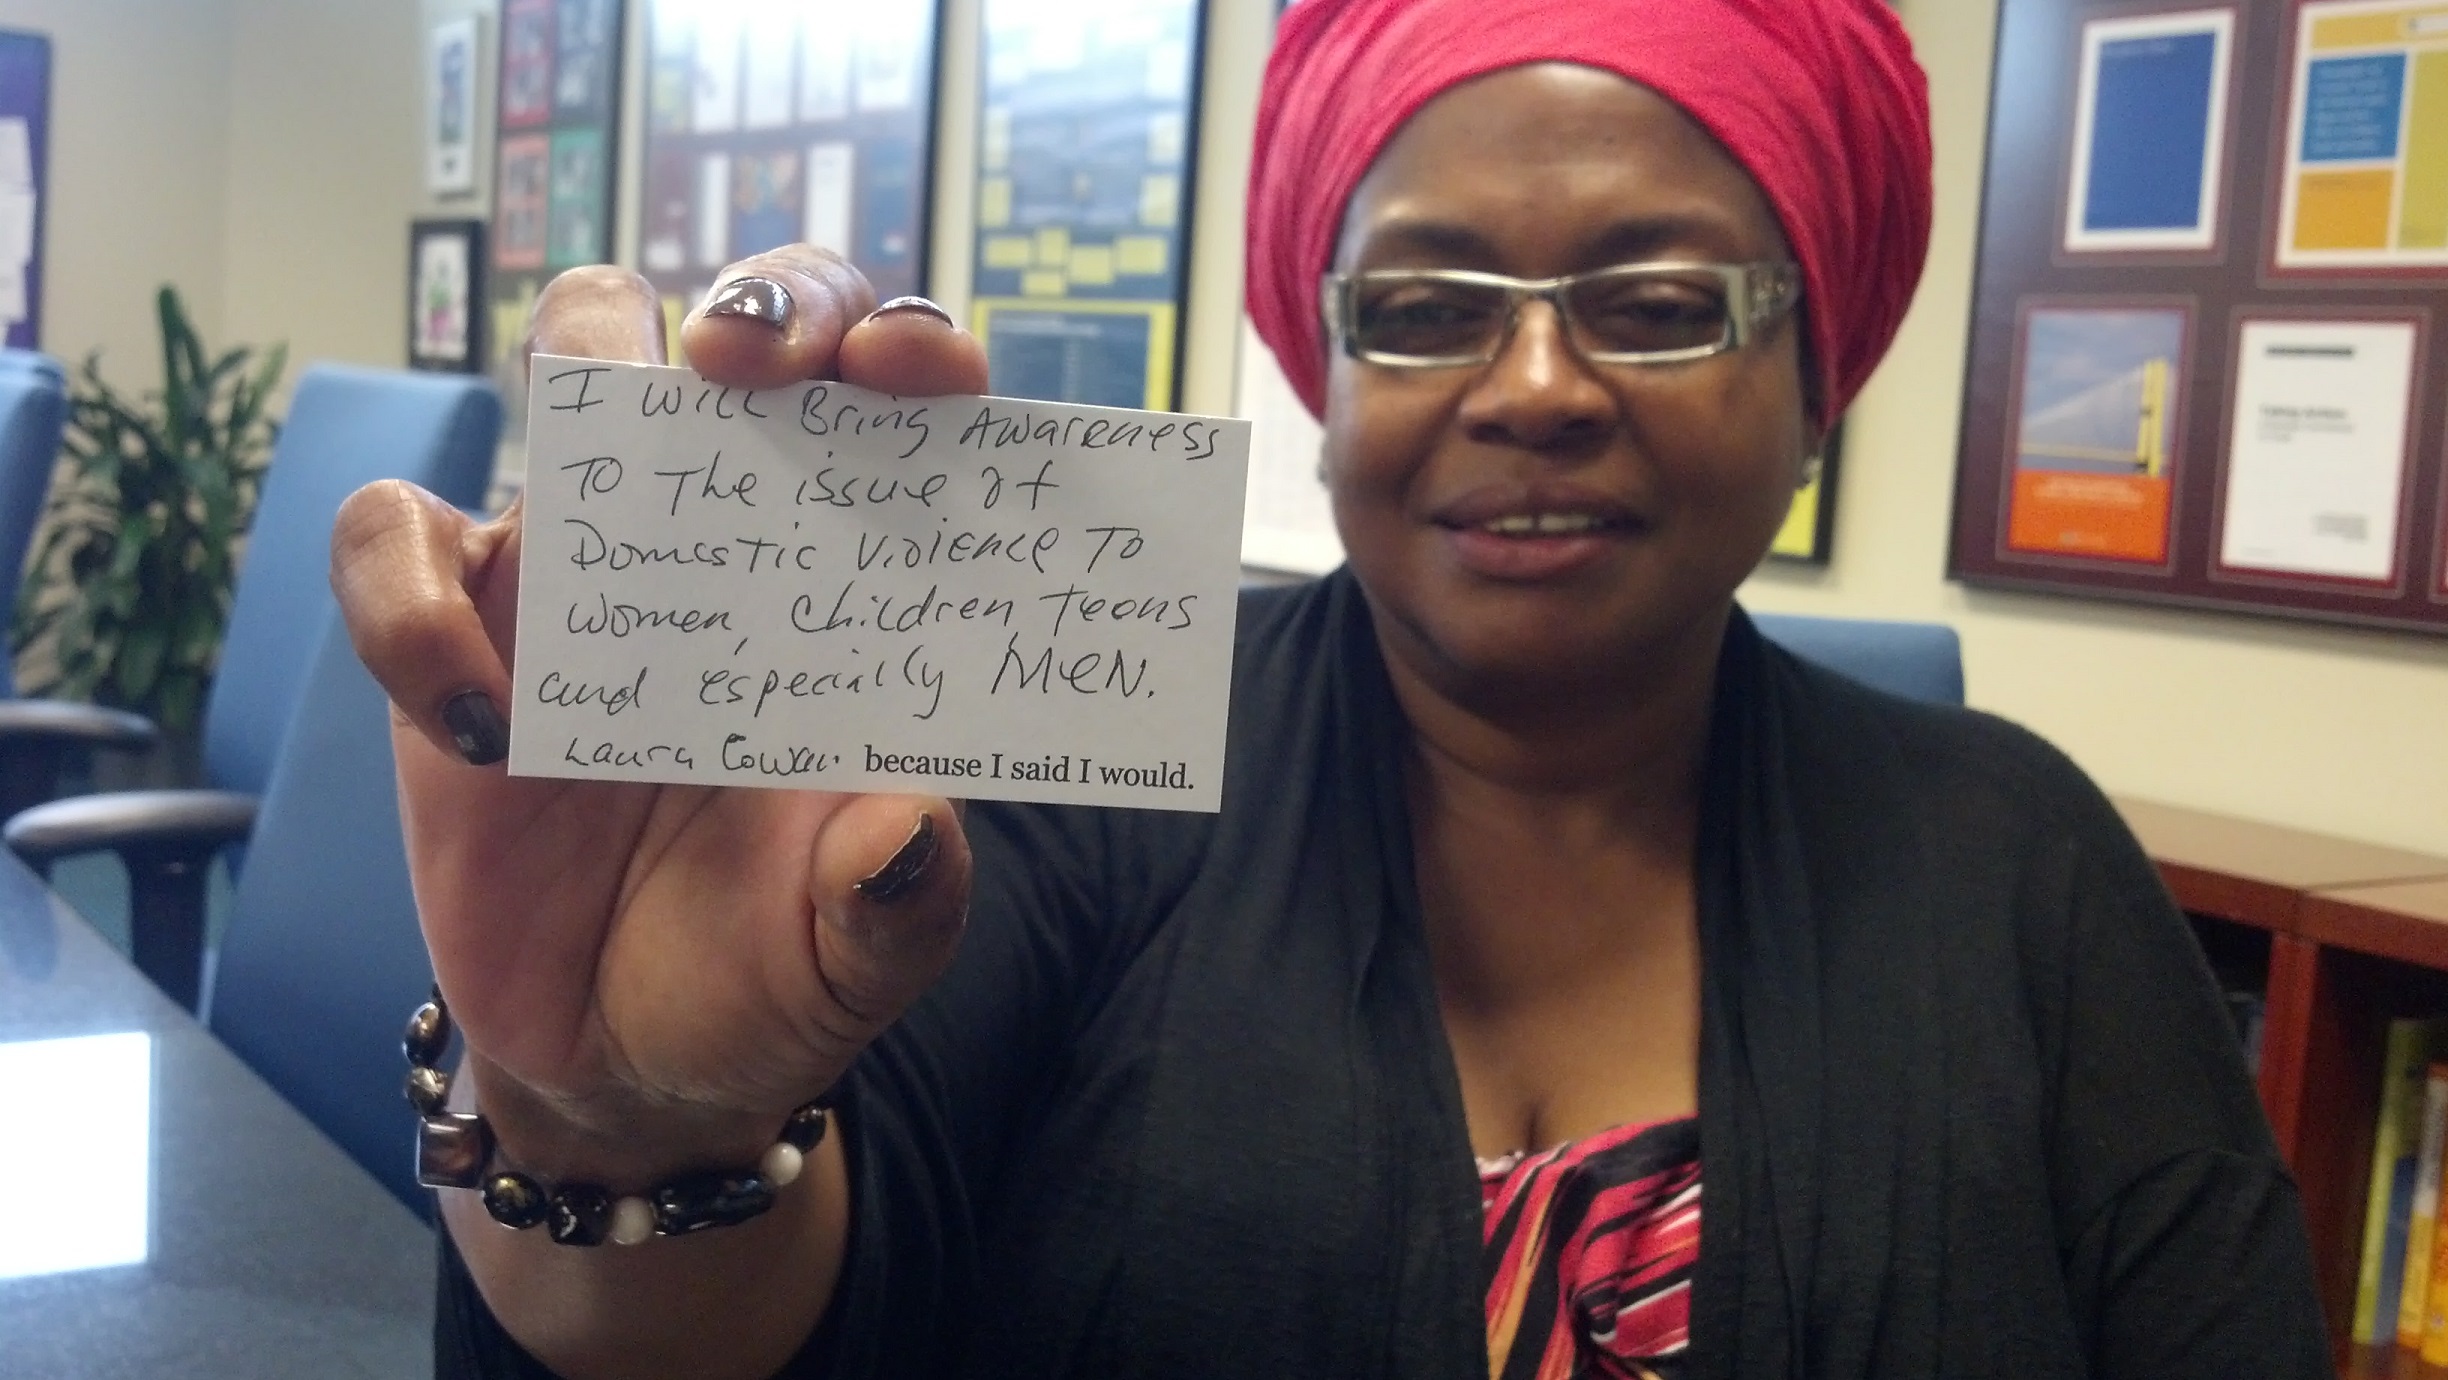 I will Bring Awareness
To The issue of
Domestic Violence To
women, Children, Teens
and especially MEN.
Laura Cowan because I said I would.